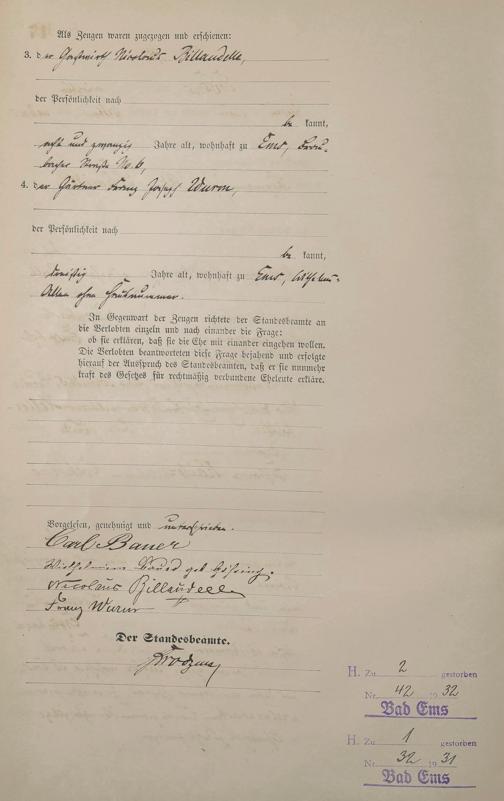 Als Zeugen waren zugezogen und erschienen:
3. der Gastwirth Nicolaus Billaudelle,
der Persönlichkeit nach
be kannt,
acht und zwanzig Jahre alt, wohnhaft zu Ems,
bacher Straße No 6,
4. der Gärtner Franz Joseph Wurm,
der Persönlichkeit nach
be kannt,
dreißig Jahre alt, wohnhaft zu Ems, Wilhelms-
Allee ohne Hausnummer.
In Gegenwart der Zeugen richtete der Standesbeamte an
die Verlobten einzeln und nach einander die Frage:
ob sie erklären, daß sie die Ehe mit einander eingehen wollen.
Die Verlobten beantworteten diese Frage bejahend und erfolgte
hierauf der Ausspruch des Standesbeamten, daß er sie nunmehr
kraft des Gesetzes für rechtmäßig verbundene Eheleute erkläre.
Vorgelesen, genehmigt und unterschrieben.
Carl Bauer
Wilhelmine Bauer geb
Nicolaus Billaudelle
Franz Wurm
Der Standesbeamte.
H. Zu 2 gestorben
Nr. 42 1932
Bad Ems
H. Zu 1 gestorben
Nr. 32 1931
Bad Ems